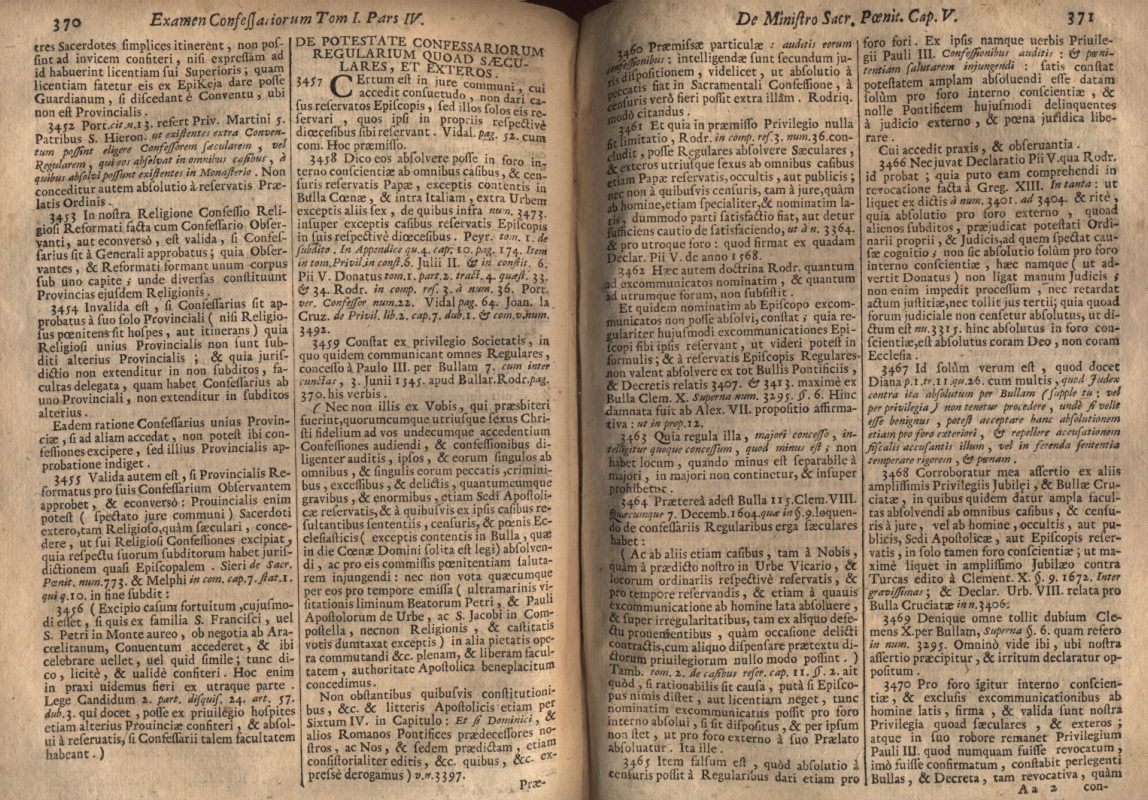 370 Examen Confessariorum Tom I. Pars IV.
tres Sacerdotes simplices itinerent, non pos-
sint ad invicem confiteri, nisi expressam ad
id habuerint licentiam sui Superioris; quam
licentiam fatetur eis ex EpiKeja dare posse
Guardianum, si discedant è Conventu, ubi
non est Provincialis.
3452 Port.cit.n.13. refert Priv. Martini 5.
Patribus S. Hieron. ut existentes extra Conven-
tum possint eligere Confessorem sæcularem, vel
Regularem, qui eos absolvat in omnibus casibus, à
quibus absolvi possunt existentes in Monasterio. Non
conceditur autem absolutio à reservatis Præ-
latis Ordinis.
3453 In nostra Religione Confessio Reli-
giosi Reformati facta cum Confessario Obser-
vanti, aut econversò, est valida, si Confes-
sarius sit à Generali approbatus; quia Obser-
vantes, & Reformati formant unum corpus
sub uno capite; unde diversas constituunt
Provincias ejusdem Religionis.
3454 Invalida est, si Confessarius sit ap-
probatus à suo solo Provinciali (nisi Religio-
sus pœnitens sit hospes, aut itinerans) quia
Religiosi unius Provincialis non sunt sub-
diti alterius Provincialis; & quia juris-
dictio non extenditur in non subditos, fa-
cultas delegata, quam habet Confessarius ab
uno Provinciali, non extenditur in subditos
alterius.
Eadem ratione Confessarius unius Provin-
ciæ, si ad aliam accedat, non potest ibi con-
fessiones excipere, sed illius Provincialis ap-
probatione indiget.
3455 Valida autem est, si Provincialis Re-
formatus pro suis Confessarium Observantem
approbet, & econversò: Prouincialis enim
potest (spectato jure communi) Sacerdoti
extero,tam Religioso,quàm sæculari, conce-
dere, ut sui Religiosi Confessiones excipiat,
quia respectu suorum subditorum habet juris-
dictionem quasi Episcopalem. Sieri de Sacr.
Pœnit. num.773. & Melphi in com. cap.7. stat.1.
qui q.10. in fine subdit:
3456 (Excipio casum fortuitum ,cujusmo-
di esset, si quis ex familia S. Francisci, uel
S. Petri in Monte aureo, ob negotia ab Ara-
cœlitanum, Conuentum accederet, & ibi
celebrare uellet, uel quid simile; tunc di-
co, licitè, & ualidè confiteri. Hoc enim
in praxi uidemus fieri ex utraque parte.
Lege Candidum 2. part. disquis. 24. art. 57.
dub.3. qui docet, posse ex priuilegio hospites
etiam alterius Prouinciæ confiteri, & absol-
ui à reseruatis, si Confessarii talem facultatem
habeant.)
DE POTESTATE CONFESSARIORUM
REGULARIUM QUOAD SÆCU-
LARES, ET EXTEROS.
3457 CErtum est in jure communi, cui
accedit consuetudo, non dari ca-
sus reservatos Episcopis, sed illos solos eis re-
servari, quos ipsi in propriis respectivè
diœcesibus sibi reservant. Vidal. pag. 52. cum
com. Hoc præmisso.
3458 Dico eos absolvere posse in foro in-
terno conscientiæ ab omnibus casibus, & cen-
suris reservatis Papæ, exceptis contentis in
Bulla Cœnæ, & intra Italiam, extra Urbem
exceptis aliis sex, de quibus infra num. 3473.
insuper exceptis casibus reservatis Episcopis
in suis respectivè diœcesibus. Peyr. tom. 1. de
subdito. In Appendice qu.4. cap. 10. pag. 174. Item
in tom.Privil.in const.6. Julii II. & in constit. 6.
Pii V. Donatus tom.1. part.2. tract.4. quæst. 33.
& 34. Rodr. in comp. ref. 3. à num. 36. Port.
ver. Confessor num.22. Vidal pag. 64. Joan. la
Cruz. de Privil. lib.2. cap.7. dub.1. & com.v.num.
3492.
3459 Constat ex privilegio Societatis, in
quo quidem communicant omnes Regulares,
concesso à Paulo III. per Bullam 7. cum inter
cunctas, 3. Junii 1545. apud Bullar.Rodr.pag.
370. his verbis.
(Nec non illis ex Vobis, qui præsbiteri
fuerint,quorumcumque utriusque sexus Chris-
ti fidelium ad vos undecumque accedentium
Confessiones audiendi, & confessionibus di-
ligenter auditis, ipsos, & eorum singulos ab
omnibus, & singulis eorum peccatis ,crimini-
bus, excessibus, & delictis, quantumcumque
gravibus, & enormibus, etiam Sedi Apostoli-
cæ reservatis,& à quibusvis ex ipsis casibus re-
sultantibus sententiis, censuris, & pœnis Ec-
clesiasticis (exceptis contentis in Bulla, quæ
in die Cœnæ Domini solita est legi) absolven-
di, ac pro eis commissis pœnitentiam saluta-
rem injungendi: nec non vota quæcumque
per eos pro tempore emissa (ultramarinis vi-
sitationis liminum Beatorum Petri, & Pauli
Apostolorum de Urbe, ac S. Jacobi in Com-
postella, necnon Religionis, & castitatis
votis dumtaxat exceptis) in alia pietatis ope-
ra commutandi &c. plenam, & liberam facul-
tatem, authoritate Apostolica beneplacitum
concedimus.
Non obstantibus quibusvis constitutioni-
bus, &c. & litteris Apostolicis etiam per
Sixtum IV. in Capitulo: Et si Dominici, &
alios Romanos Pontifices prædecessores no-
stros, ac Nos, & sedem prædictam, etiam
consistorialiter editis, &c. quibus, &c. ex-
pressè derogamus) v.n.3397.
Præ-
De Ministro Sacr. Pœnit. Cap. V. 371
3460 Præmissæ particulæ: auditis eorum
confessionibus: intelligendæ sunt secundum ju-
ris dispositionem, videlicet, ut absolutio à
peccatis fiat in Sacramentali Confessione, à
censuris verò fieri possit extra illam. Rodriq.
modò citandus.
3461 Et quia in præmisso Privilegio nulla
sit limitatio, Rodr. in comp. ref.3. num.36.con-
cludit, posse Regulares absolvere Sæculares,
& exteros utriusque sexus ab omnibus casibus
etiam Papæ reservatis, occultis, aut publicis;
nec non à quibusvis censuris, tam à jure,quàm
ab homine,etiam specialiter,& nominatim la-
tis, dummodo parti satisfactio fiat, aut detur
sufficiens cautio de satisfaciendo, ut à n. 3364.
& pro utroque foro: quod firmat ex quadam
Declar. Pii V. de anno 1568.
3462 Hæc autem doctrina Rodr. quantum
ad excommunicatos nominatim, & quantum
ad utrumque forum, non subsistit.
Et quidem nominatim ab Episcopo excom-
municatos non posse absolvi, constat; quia re-
gulariter hujusmodi excommunicationes Epi-
scopi sibi ipsis reservant, ut videri potest in
formulis; & à reservatis Episcopis Regulares
non valent absolvere ex tot Bullis Pontificiis,
& Decretis relatis 3407. & 3413. maximè ex
Bulla Clem. X. Superna num. 3295. §. 6. Hinc
damnata fuit ab Alex. VII. propositio affirma-
tiva: ut in prop.12.
3463 Quia regula illa, majori concesso, in-
telligitur quoque concessum, quod minus est; non
habet locum, quando minus est separabile à
majori, in majori non continetur, & insuper
prohibetur.
3464 Prætereà adest Bulla 115.Clem.VIII.
Quæcumque 7. Decemb.1604.quæ in §.9.loquen-
do de confessariis Regularibus erga sæculares
habet:
(Ac ab aliis etiam casibus, tam à Nobis,
quàm à prædicto nostro in Urbe Vicario, &
locorum ordinariis respectivè reservatis, &
pro tempore reservandis, & etiam à quauis
excommunicatione ab homine lata absoluere,
& super irregularitatibus, tam ex aliquo defe-
ctu prouenientibus, quàm occasione delicti
contractis,cum aliquo dispensare prætextu di-
ctorum priuilegiorum nullo modo possint.)
Tamb. tom. 2. de casibus reser. cap. 11. §. 2. ait
quòd, si rationabilis sit causa, putà si Episco-
pus nimis distet, aut licentiam neget, tunc
nominatim excommunicatis possit pro foro
interno absolui, si sit dispositus, & per ipsum
non stet, ut pro foro externo à suo Prælato
absoluatur. Ita ille.
3465 Item falsum est, quòd absolutio à
censuris possit à Regularibus dari etiam pro
foro fori. Ex ipsis namque uerbis Priuile-
gii Pauli III. Confessionibus auditis: & pœni-
tentiam salutarem injungendi: satis constat
potestatem amplam absoluendi esse datam
solùm pro foro interno conscientiæ, &
nolle Pontificem hujusmodi delinquentes
à judicio externo, & pœna juridica libe-
rare.
Cui accedit praxis, & obseruantia.
3466 Nec juvat Declaratio Pii V.qua Rodr.
id probat; quia puto eam comprehendi in
revocatione facta à Greg. XIII. In tanta: ut
liquet ex dictis à num. 3401. ad 3404. & ritè,
quia absolutio pro foro externo, quoad
alienos subditos, præjudicat potestati Ordi-
narii proprii, & Judicis,ad quem spectat cau-
sæ cognitio; non sic absolutio solùm pro foro
interno conscientiæ, hæc namque (ut ad-
vertit Donatus) non ligat manum Judicis;
non enim impedit processum, nec retardat
actum justitiæ,nec tollit jus tertii; quia quoad
forum judiciale non censetur absolutus, ut di-
ctum est nu.3315. hinc absolutus in foro con-
scientiæ,est absolutus coram Deo, non coram
Ecclesia.
3467 Id solùm verum est, quod docet
Diana p.1.tr.11.qu.26. cum multis, quod Judex
contra ita absolutum per Bullam (supple tu: vel
per privilegia) non tenetur procedere, undè si velit
esse benignus, potest acceptare hanc absolutionem
etiam pro foro exteriori, & repellere accusationem
fiscalis accusantis illum, vel in ferenda sententia
temperare rigorem, & pœnam.
3468 Corroboratur mea assertio ex aliis
amplissimis Privilegiis Jubilei, & Bullæ Cru-
ciatæ, in quibus quidem datur ampla facul-
tas absolvendi ab omnibus casibus, & censu-
ris à jure, vel ab homine ,occultis, aut pu-
blicis, Sedi Apostolicæ, aut Episcopis reser-
vatis, in solo tamen foro conscientiæ; ut ma-
ximè liquet in amplissimo Jubilæo contra
Turcas edito à Clement. X. §. 9. 1672. Inter
gravissimas; & Declar. Urb. VIII. relata pro
Bulla Cruciatæ in n.3406.
3469 Denique omne tollit dubium Cle-
mens X.per Bullam, Superna §. 6. quam refero
in num. 3295. Omninò vide ibi, ubi nostra
assertio præcipitur, & irritum declaratur op-
positum.
3470 Pro foro igitur interno conscien-
tiæ, & exclusis excommunicationibus ab
homine latis, firma & valida sunt nostra
Privilegia quoad sæculares, & exteros;
atque in suo robore remanet Privilegium
Pauli III. quod numquam fuisse revocatum,
imò fuisse confirmatum, constabit perlegenti
Bullas, & Decreta, tam revocativa, quàm
A a 2 con-